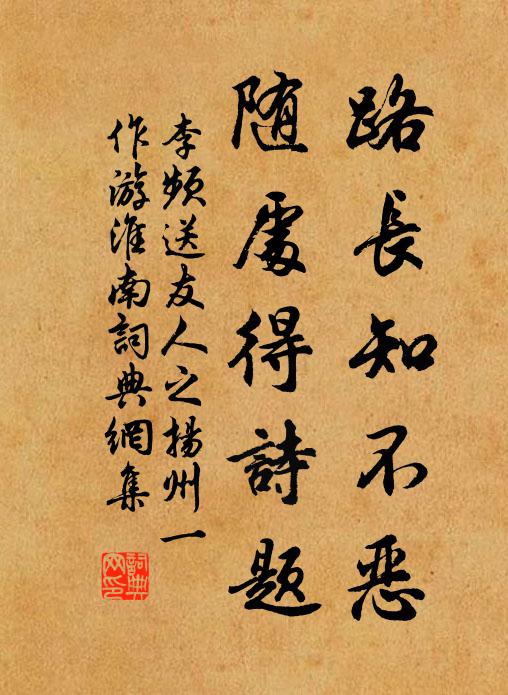 路長知不惡
随處得詩題
李頻送友人之揚州一
作游淮南詞典網集
詞典网印